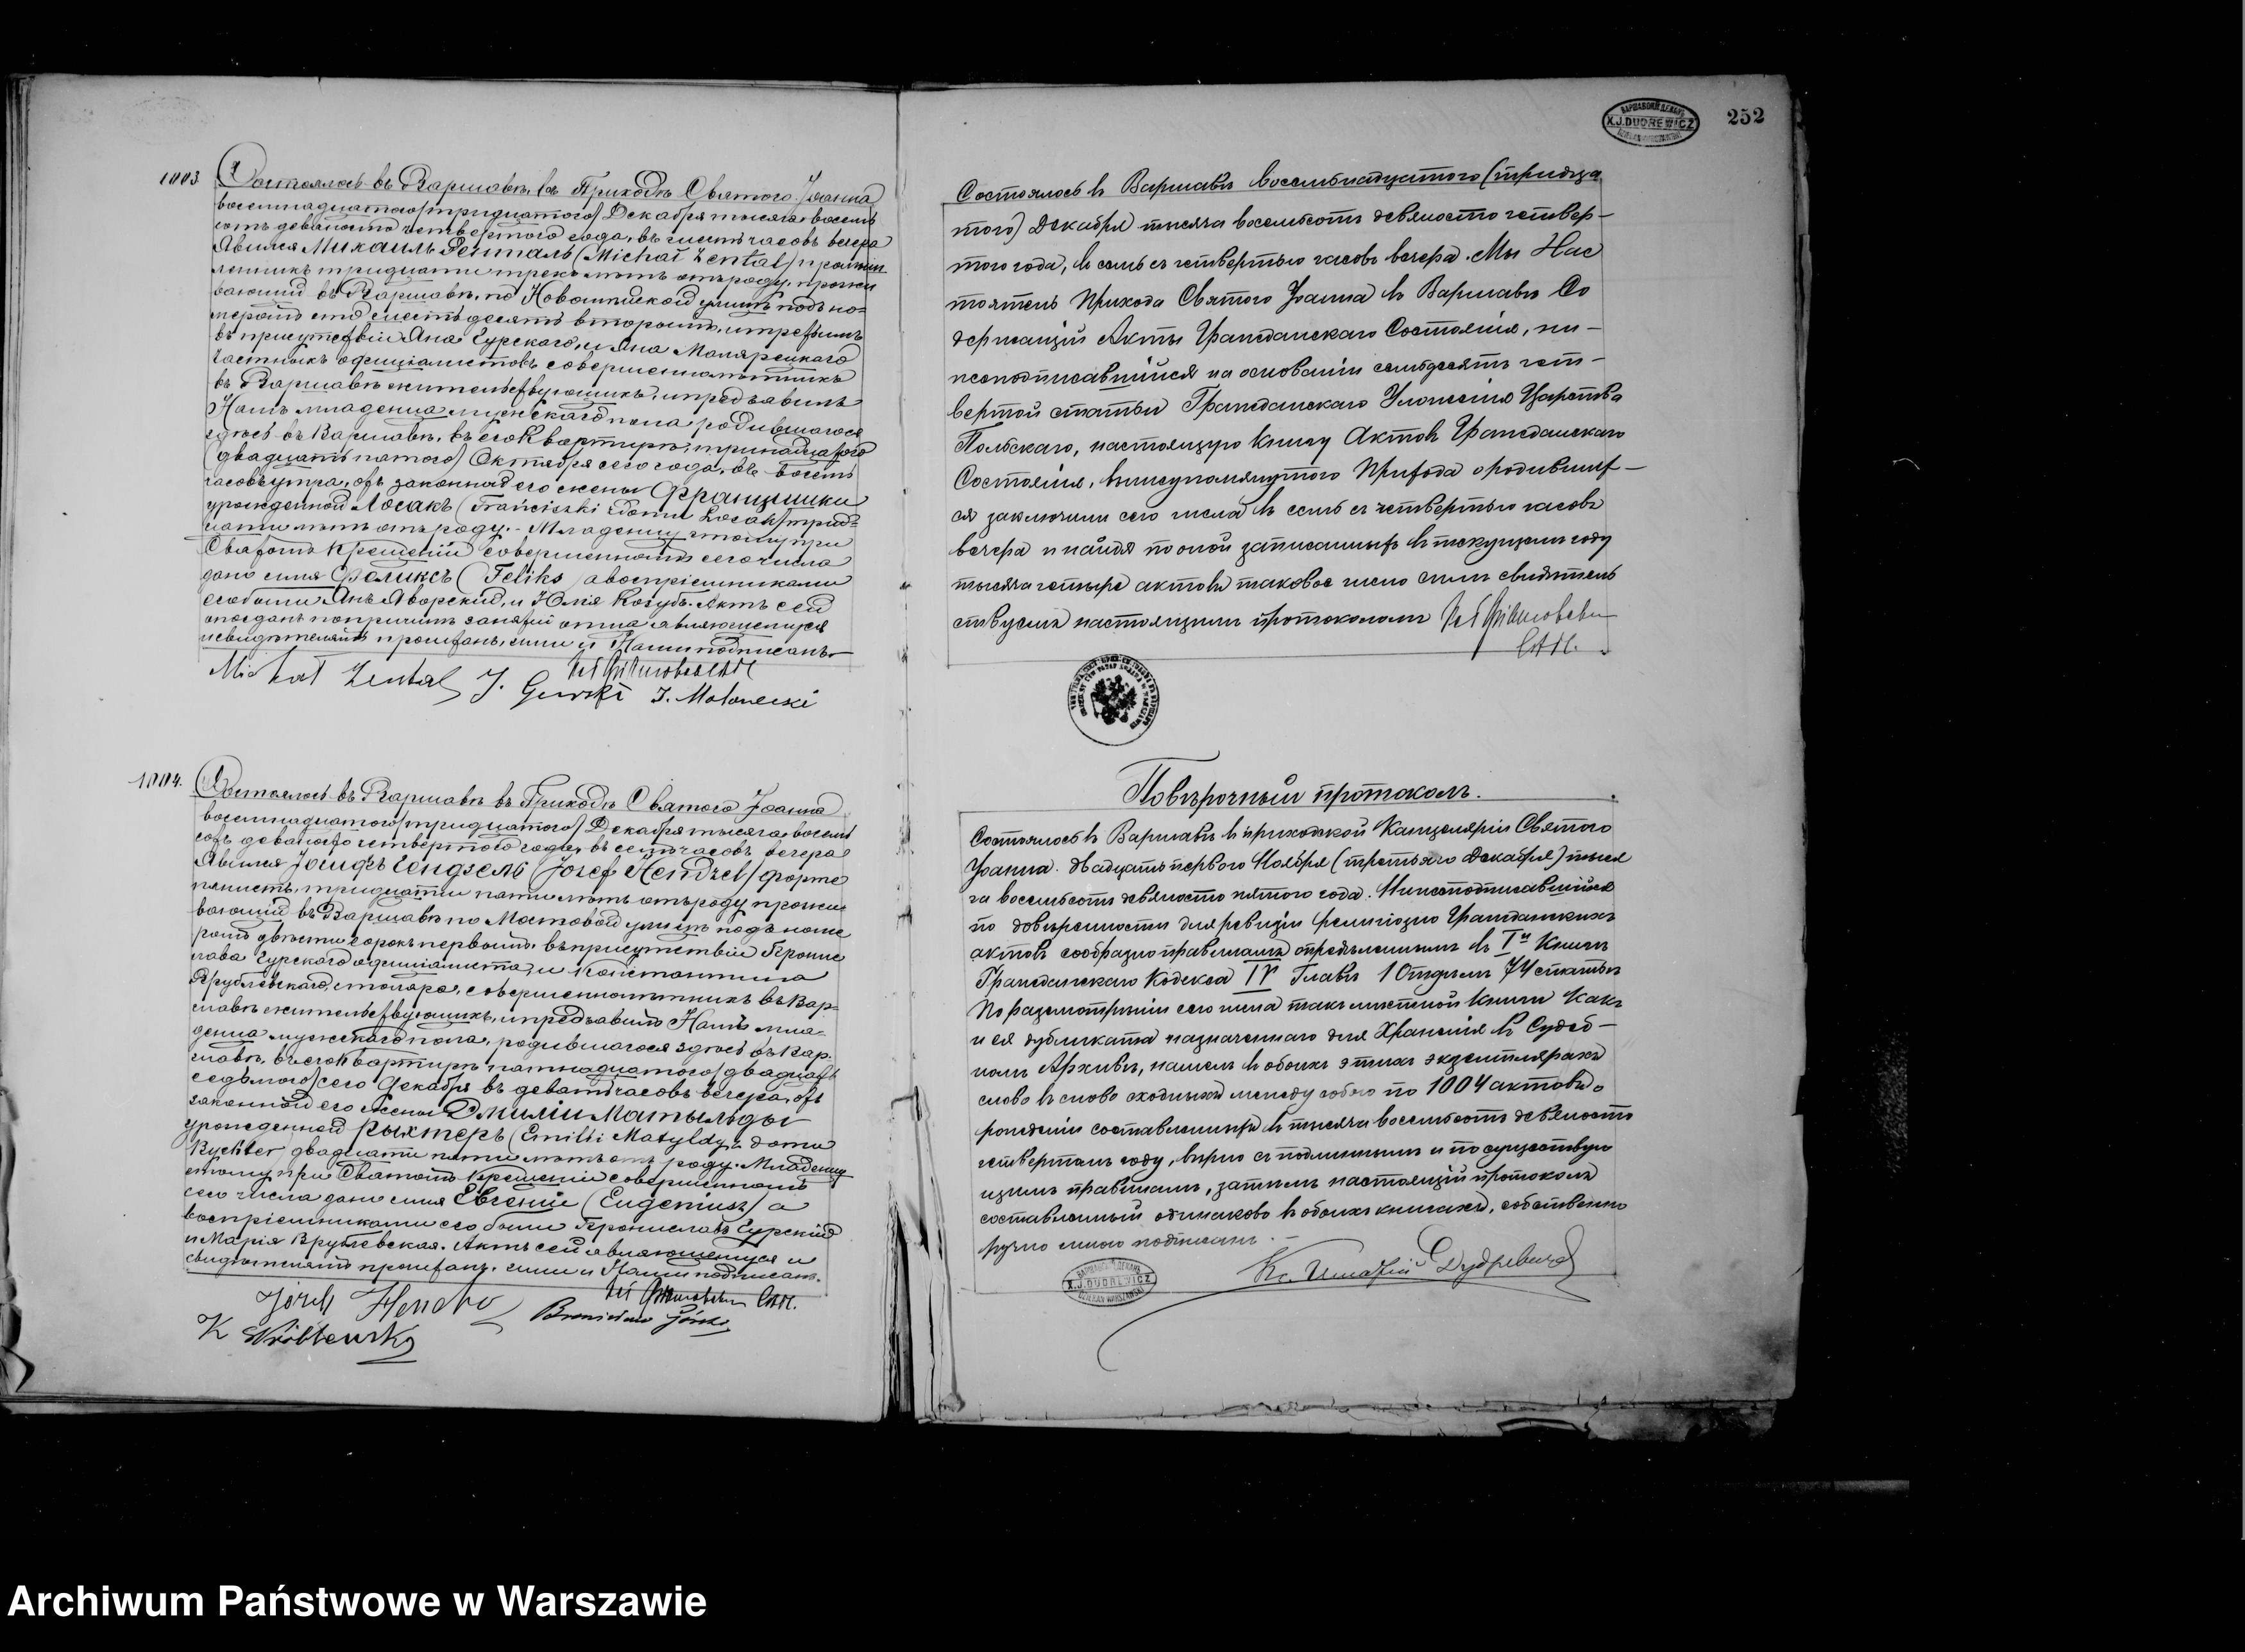 1003
Состоялось въ Варшавѣ, въ Приходѣ Святого Іоанна
восемнадцатого/тридцатого/ Декабря тысяча восемь
сотъ девяносто четвертого года, въ шесть часовъ вечера
Явился Михаилъ Зенталь (Michał Zental)
тридцати трехъ лѣтъ отъ роду, прожи
вающій въ Варшавѣ, по улицѣ подъ но-
меромъ сто шестьдесятъ вторымъ, и третьимъ
въ присутствіи Яна Гурскаго, и Яна Малярецкаго
частныхъ оффиціалистовъ совершеннолѣтнихъ
въ Варшавѣ жительствующихъ, и предъявилъ
Намъ младенца мужескаго пола родившагося
здѣсь въ Варшавѣ, въ его квартирѣ, тринадцатого
(двадцать пятого) Октября сего года, въ восемь
часовъ утра, отъ законной его жены Францишки
урожденной Лосакъ (Franciszki z domu Losak) трид-
цати лѣтъ отъ роду. Младенцу этому при
Святомъ крещеніи совершенномъ сего числа
дано имя Феликсъ (Feliks) а воспріемниками
его были Янъ Яворскій, и Юлія Козубъ. Актъ сей
опозданъ по причинѣ занятій отца являющемуся
и свидѣтелямъ прочитанъ, ими и Нами подписанъ.
Michał Zental J. Gurski J. Malarecki
1004.
Состоялось въ Варшавѣ въ Приходѣ Святого Іоанна
восемнадцатого/тридцатого/ Декабря тысяча восемь
сотъ девяносто четвертого года, въ семь часовъ вечера
Явился Іосифъ Гендзель (Józef Hendzel) форте
пянистъ, тридцати пяти лѣтъ отъ роду прожи
вающій въ Варшавѣ по Мостовой улицѣ подъ номе
ромъ двѣсти сорокъ первымъ, въ присутствіи Бронис
лава Гурскаго оффиціалиста, и Константина
Врублевскаго, столяра, совершеннолѣтнихъ въ Вар-
шавѣ жительствующихъ, и предъявилъ Намъ мла-
денца мужескаго пола, родившагося здѣсь въ Вар-
шавѣ, въ его квартирѣ пятнадцатого/двадцать
седьмого/ сего Декабря въ девять часовъ вечера, отъ
законной его жены Эмиліи Матыльды
урожденной Рыхтеръ (Emilii Matyldy z domu
Rychter) двадцати пяти лѣтъ отъ роду. Младенцу
этому при Святомъ Крещеніи совершенномъ
сего числа дано имя Евгеній (Eugeniusz) а
воспріемниками его были Брониславъ Гурскій
и Марія Врублевская. Актъ сей являющемуся и
свидѣтелямъ прочитанъ, ими и Нами подписанъ.
Józef Hendzel
K Wróblewski Bronisław Górski
ВАРШАВСКІЙ ДЕКАНЪ
X.J.DUDREWICZ
DZIEKAN WARSZAWSKI
252
Состоялось въ Варшавѣ восемьнадцатого (тридца
того) Декабря тысяча восемьсотъ девяносто четвер-
того года, въ семь съ четвертью часовъ вечера. Мы Нас
тоятель Прихода Святого Іоанна въ Варшавѣ Со
держащій Акты Гражданскаго Состоянія, ни-
жеподписавшійся на основаніи семьдесятъ чет-
вертой статьи Гражданскаго Уложенія Царства
Польскаго, настоящую книгу Актовъ Гражданскаго
Состоянія, вышеупомянутого Прихода о родивших-
ся заключили сего числа въ семь съ четвертью часовъ
вечера и найдя по оной записанныхъ въ текущемъ году
тысяча четыре актовъ таковое число симъ свидѣтель
ствуемъ настоящимъ протоколомъ
Повѣрочный протоколъ.
Состоялось въ Варшавѣ въ приходской Канцеляріи Святого
Іоанна. Двадцать первого Ноября (третьяго Декабря) тыся
ча восемьсотъ девяносто пятого года. Нижеподписавшійся
по довѣренности для ревизіи религіозно Гражданскихъ
актовъ сообразно правиламъ опредѣленнымъ въ Iй Книгѣ
Гражданскаго Кодекса IV Главѣ 1 Отдѣлѣ 74 статьѣ
По разсмотрѣніи сего числа такъ мѣстной книги какъ
и ея дубликата назначеннаго для Храненія въ Судеб-
номъ Архивѣ, нашелъ въ обоихъ этихъ экземплярахъ
слово въ слово сходныхъ между собою по 1004 актовъ о
рожденіи составленныхъ въ тысяча восемьсотъ девяносто
четвертомъ году, вѣрно съ подлиннымъ и по существую
щимъ правиламъ, затѣмъ настоящій протоколъ
составленный одинаково въ обоихъ книгахъ, собственно
ручно мною подписанъ.
Кс. Игнатій Дудревичъ
ВАРШАВСКІЙ ДЕКАНЪ
X.J.DUDREWICZ
DZIEKAN WARSZAWSKI
Archiwum Państwowe w Warszawie